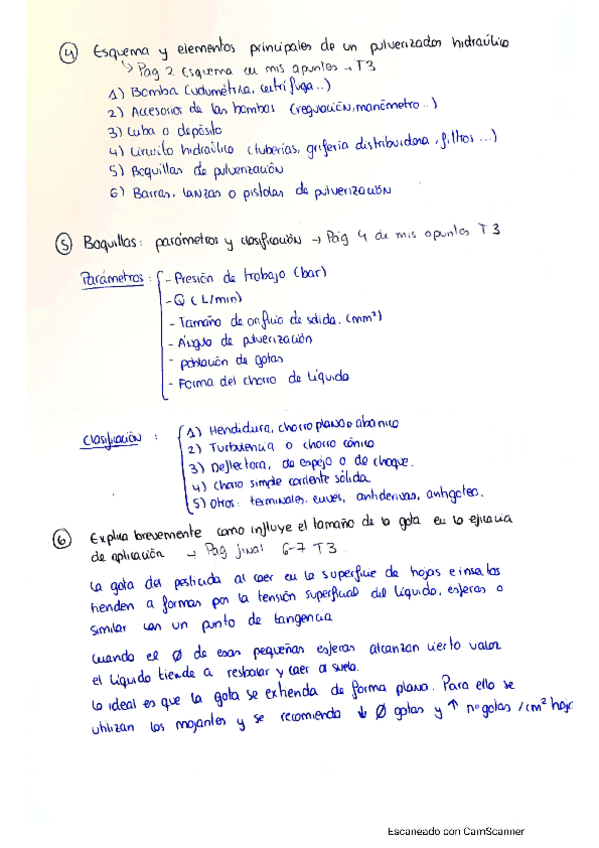 ④ Esquema y elementos principales de un pulverizador hidraúlico
↳ Pag 2 Esquema en mis apuntes → T3
1) Bomba (volumétrica, centrífuga..)
2) Accesorios de las bombas (regulación, manómetro..)
3) Cuba o depósito
4) Circuito hidraúlico (tuberías, grifería distribuidora, filtros ...)
5) Boquillas de pulverización
6) Barras, lanzas o pistolas de pulverización
⑤ Boquillas: parámetros y clasificación → Pág 4 de mis apuntes T3
Parámetros: - Presión de trabajo (bar)
- Q (L/min)
- Tamaño de orificio de salida. (mm²)
- Ángulo de pulverización
- población de gotas
- Forma del chorro de líquido
Clasificación: 1) Hendidura, chorro plano o abanico
2) Turbulencia o chorro cónico
3) Deflectora, de espejo o de choque.
4) Chorro simple corriente sólida.
5) Otros: terminales, euves, antiderivas, antigoteo.
⑥ Explica brevemente como influye el tamaño de la gota en la eficacia
de aplicación → Pag final 6-7 T3.
La gota del pesticida al caer en la superficie de hojas e insectos
tienden a formas por la tensión superficial del líquido, esferas o
similar con un punto de tangencia
Cuando el Ø de esas pequeñas esferas alcanzan cierto valor
el líquido tiende a resbalar y caer al suelo.
lo ideal es que la gota se extienda de forma plana. Para ello se
utilizan los mojantes y se recomienda ↓ Ø gotas y ↑ nº gotas /cm² hoja
Escaneado con CamScanner